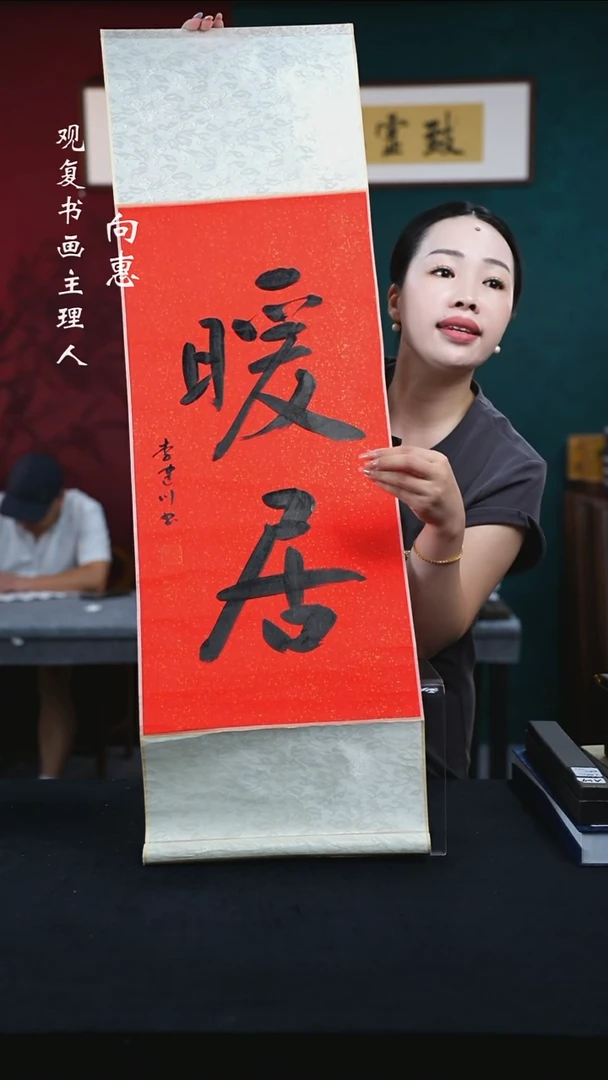 观复书画主理人
向惠
暖居
李建川书